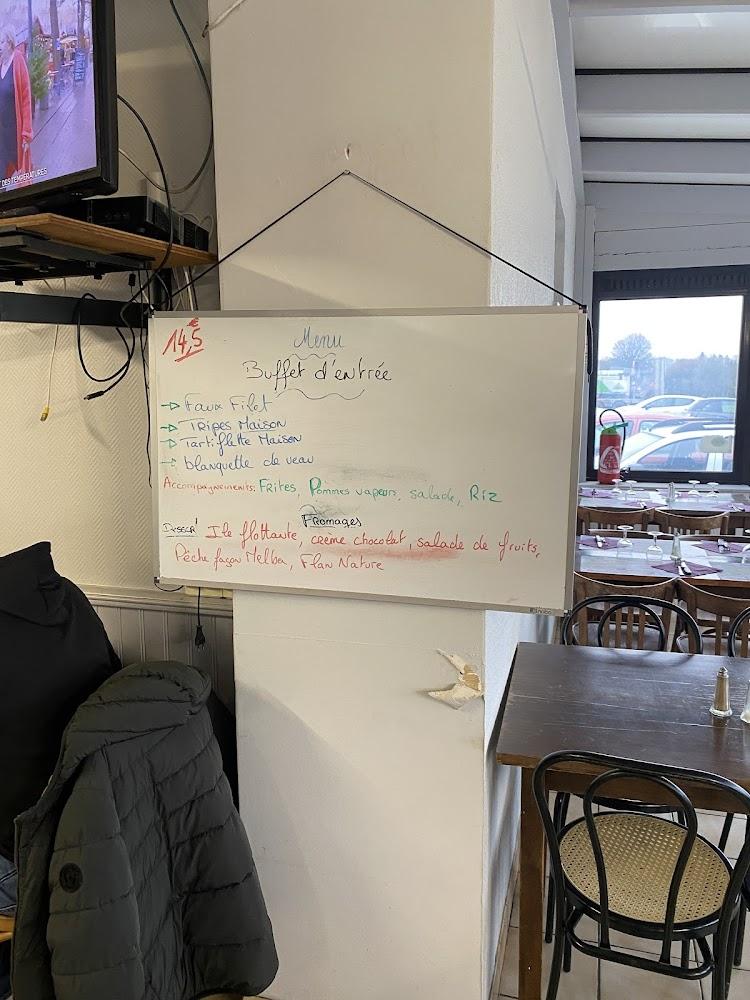 DES TEMPÉRATURES
14,5 €
Menu
Buffet d'entrée
→ Faux Filet
→ Tripes Maison
→ Tartiflette Maison
→ blanquette de veau
Accompagnements: Frites, Pommes vapeurs, salade, Riz
Fromages
Dessert Ile flottante, crème chocolat, salade de fruits,
Pêche façon Melba, Flan Nature